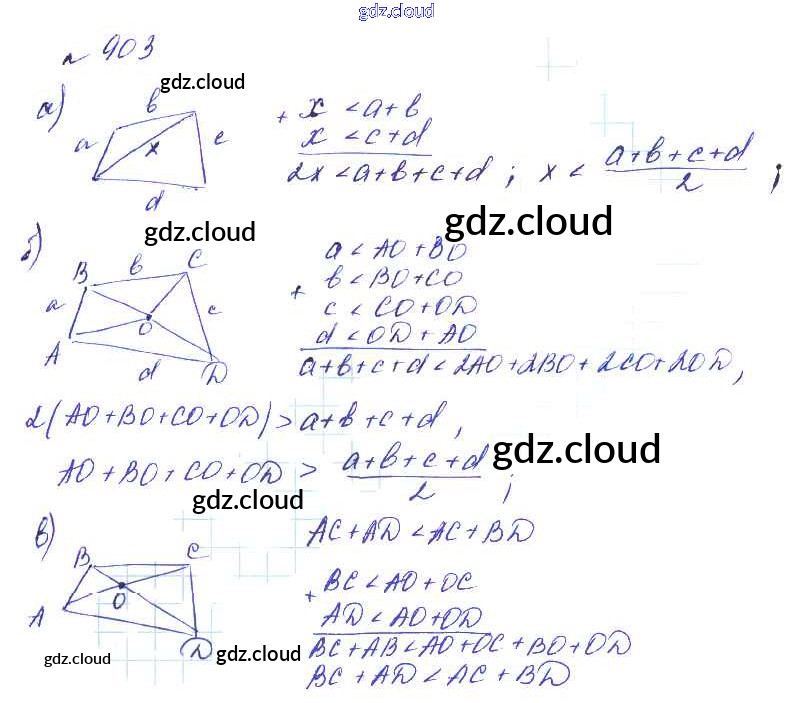 gdz.cloud
№ 903
gdz.cloud
а)
a b c d x
+ x < a + b
x < c + d
2x < a + b + c + d ; x < a+b+c+d / 2 ;
gdz.cloud
gdz.cloud
б)
B b C
a c
O
A d D
+ a < AO + BO
b < BO + CO
c < CO + OD
d < OD + AO
a + b + c + d < 2AO + 2BO + 2CO + 2OD,
2(AO + BO + CO + OD) > a + b + c + d,
AO + BO + CO + OD > a+b+c+d / 2 ;
gdz.cloud
gdz.cloud
в)
B C
O
A D
AC + AD < AC + BD
+ BC < AO + OC
AD < AO + OD
BC + AB < AO + OC + BO + OD
BC + AD < AC + BD
gdz.cloud
gdz.cloud